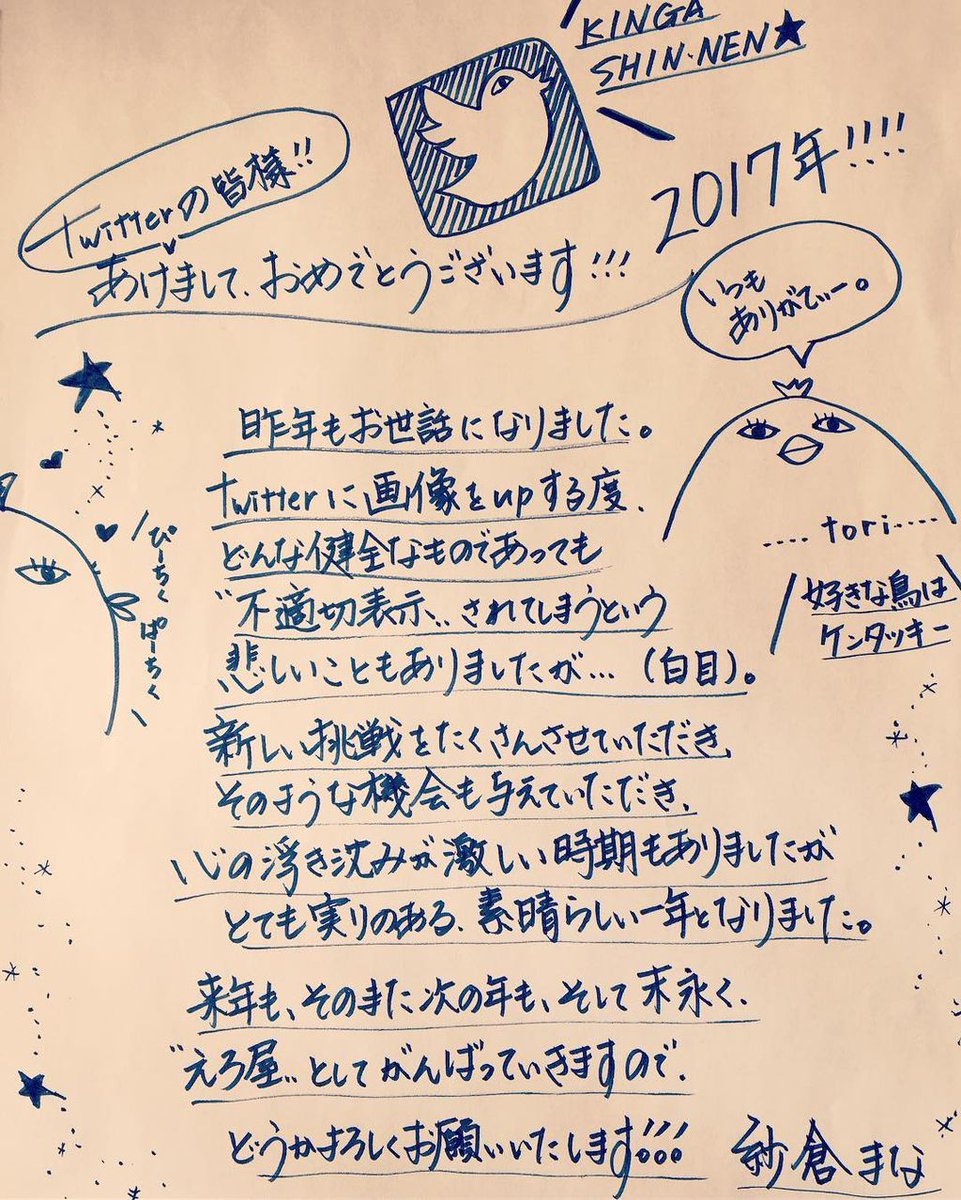 KINGA
SHIN・NEN★
twitterの皆様!!
2017年!!!!
あけまして、おめでとうございます!!!
いつも
ありがてぃー。
昨年もお世話になりました。
twitterに画像をupする度、
どんな健全なものであっても
"不適切表示"されてしまうという
悲しいこともありましたが…(白目)。
新しい挑戦をたくさんさせていただき、
そのような機会も与えていただき、
心の浮き沈みが激しい時期もありましたが
とても実りのある、素晴らしい一年となりました。
来年も、そのまた次の年も、そして末永く、
"えろ屋"としてがんばっていきますので、
どうかよろしくお願いいたします!!!
紗倉まな
ぴーちく
ぱーちく
.....tori.....
好きな鳥は
ケンタッキー